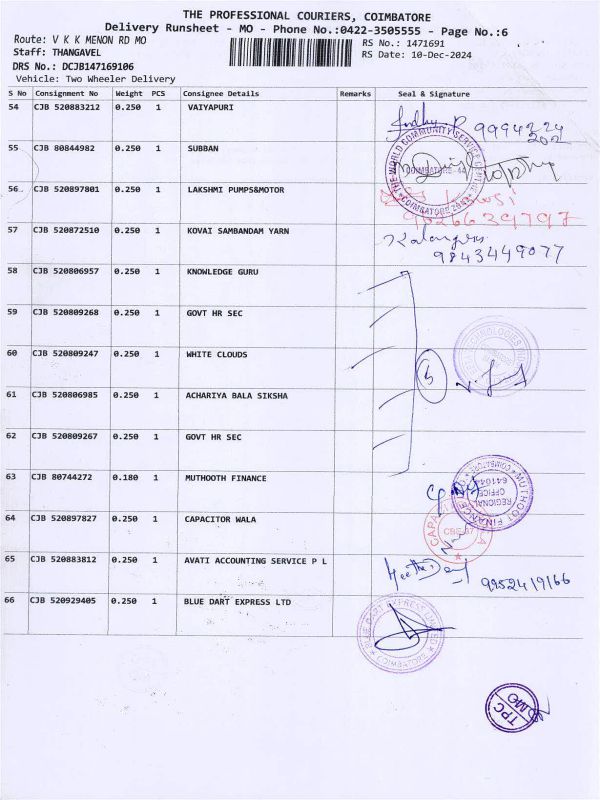 THE PROFESSIONAL COURIERS, COIMBATORE
Delivery Runsheet - MO - Phone No.:0422-3505555 - Page No.:6
Route: V K K MENON RD MO
RS No.: 1471691
Staff: THANGAVEL
RS Date: 10-Dec-2024
DRS No.: DCJB147169106
Vehicle: Two Wheeler Delivery
S No Consignment No Weight PCS Consignee Details Remarks Seal & Signature
54 CJB 520883212 0.250 1 VAIYAPURI
9994224
202
55 CJB 80844982 0.250 1 SUBBAN
THE WORLD COMMUNITY SERVICE
COIMBATORE-44
56 CJB 520897801 0.250 1 LAKSHMI PUMPS&MOTOR
9526639797
57 CJB 520872510 0.250 1 KOVAI SAMBANDAM YARN
9843449077
58 CJB 520806957 0.250 1 KNOWLEDGE GURU
59 CJB 520809268 0.250 1 GOVT HR SEC
60 CJB 520809247 0.250 1 WHITE CLOUDS
5
61 CJB 520806985 0.250 1 ACHARIYA BALA SIKSHA
62 CJB 520809267 0.250 1 GOVT HR SEC
63 CJB 80744272 0.180 1 MUTHOOTH FINANCE
MUTHOOT FINANCE
REGIONAL
OFFICE
COIMBATORE
64 CJB 520897827 0.250 1 CAPACITOR WALA
65 CJB 520883812 0.250 1 AVATI ACCOUNTING SERVICE P L
9952419166
66 CJB 520929405 0.250 1 BLUE DART EXPRESS LTD
BLUE DART EXPRESS LIMITED
COIMBATORE
TPC
MO